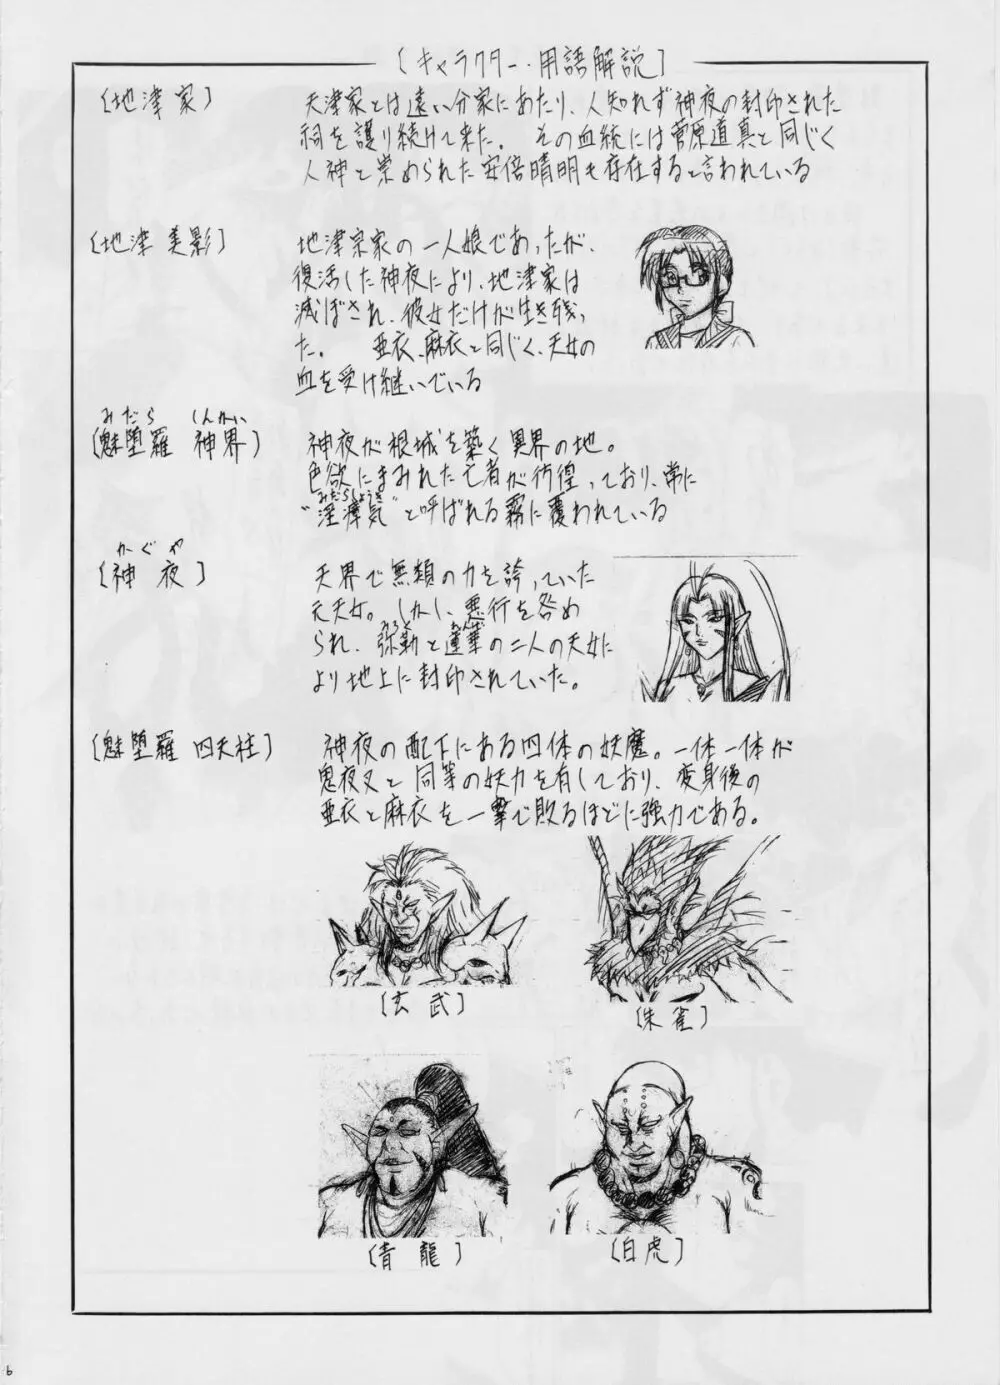 [キャラクター・用語解説]
[地津家]
天津家とは遠い分家にあたり、人知れず神夜の封印された
祠を護り続けて来た。 その血統には菅原道真と同じく
人神と崇められた安倍晴明も存在すると言われている
[地津 美影]
地津宗家の一人娘であったが、
復活した神夜により、地津家は
滅ぼされ、彼女だけが生き残っ
た。 亜衣、麻衣と同じく、天女の
血を受け継いでいる
みだら しんかい
[魅堕羅 神界]
神夜が根城を築く異界の地。
色欲にまみれた亡者が彷徨っており、常に
みだらしょうき
"淫瘴気"と呼ばれる霧に覆われている
かぐや
[神夜]
天界で無類の力を誇っていた
元天女。しかし、悪行を咎め
みろく れんげ
られ、弥勒と蓮華の二人の天女に
より地上に封印されていた。
[魅堕羅 四天柱]
神夜の配下にある四体の妖魔。一体一体が
鬼夜叉と同等の妖力を有しており、変身後の
亜衣と麻衣を一撃で敗るほどに強力である。
[玄武]
[朱雀]
[青龍]
[白虎]
6